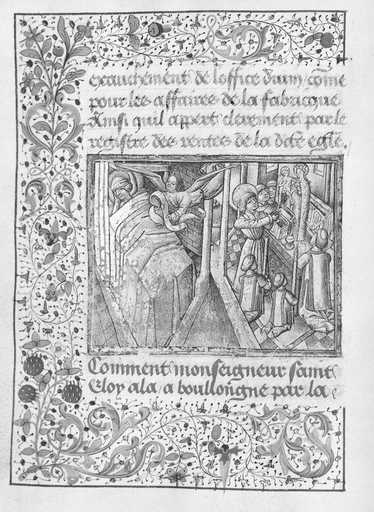 exauchement de loffice divin, come
pour les affaires de la fabricque
Ainsi quil appert clerement par le
registre des rentes de la dicte eglise.
Comment monseigneur saint
Eloy ala a boullongne par la